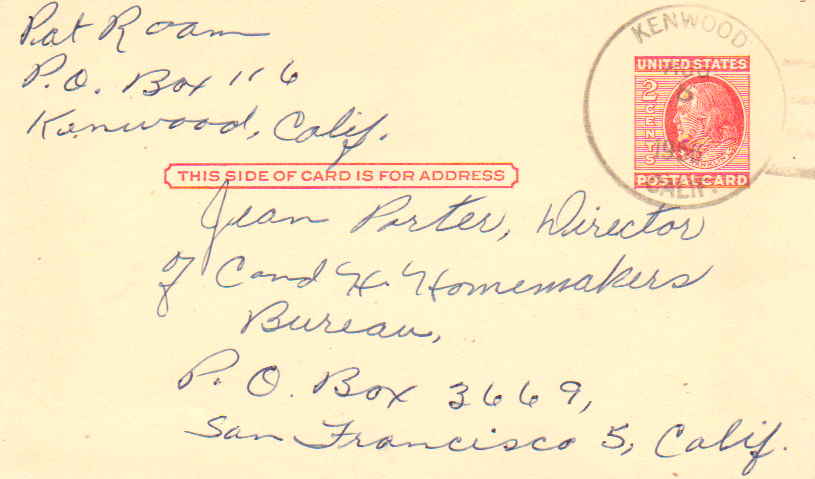 Pat Roam
P.O. Box 116
Kenwood, Calif.
KENWOOD
AUG
1955
CALIF.
UNITED STATES
2
CENTS
FRANKLIN
POSTAL CARD
THIS SIDE OF CARD IS FOR ADDRESS
Jean Porter, Director
of C and H. Homemakers
Bureau,
P.O. Box 3669,
San Francisco 5, Calif.